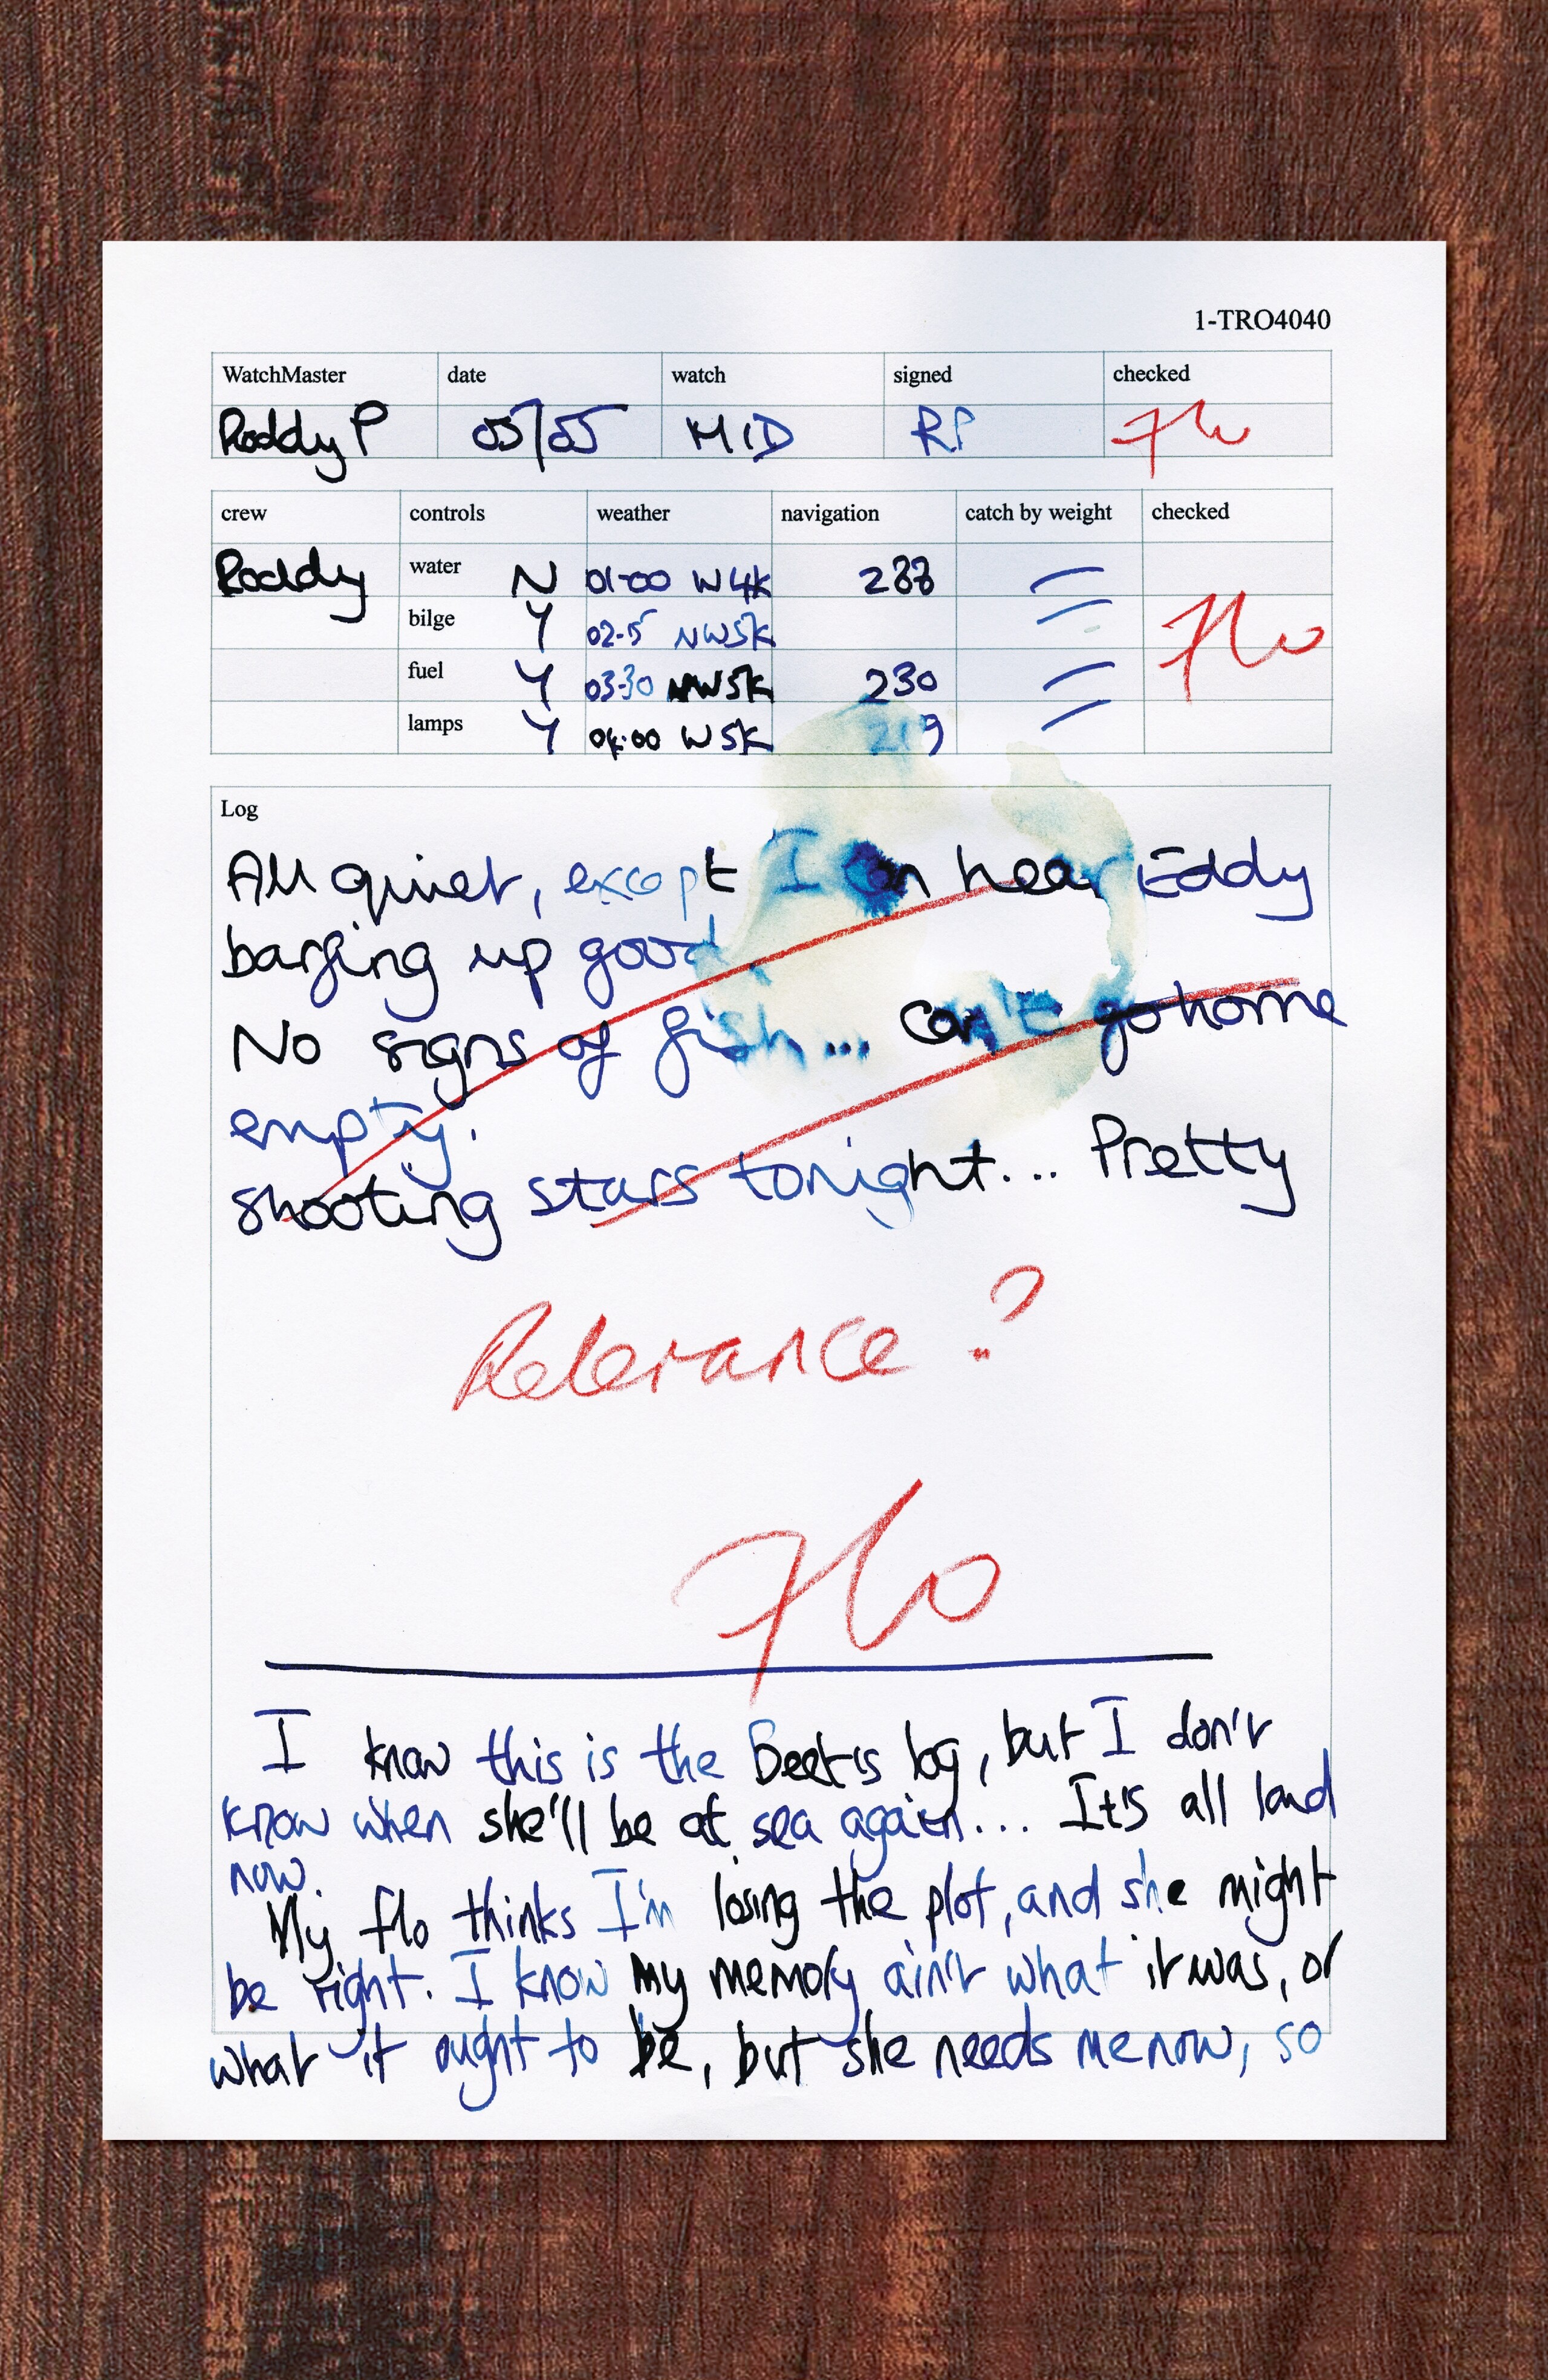 1-TRO4040
WatchMaster date watch signed checked
Roddy P 05/05 MID RP Flo
crew controls weather navigation catch by weight checked
Roddy water N 01-00 W4K 233 —
bilge Y 02-15 NW5K — Flo
fuel Y 03-30 NW5K 230 —
lamps Y 04:00 W5K 219 —
Log
All quiet, except I can hear Eddy
barfing up good.
No signs of fish... can't go home
empty.
shooting stars tonight... Pretty
Relevance?
Flo
I know this is the Beet's log, but I don't
know when she'll be at sea again... It's all land
now.
My flo thinks I'm losing the plot, and she might
be right. I know my memory ain't what it was, or
what it ought to be, but she needs me now, so